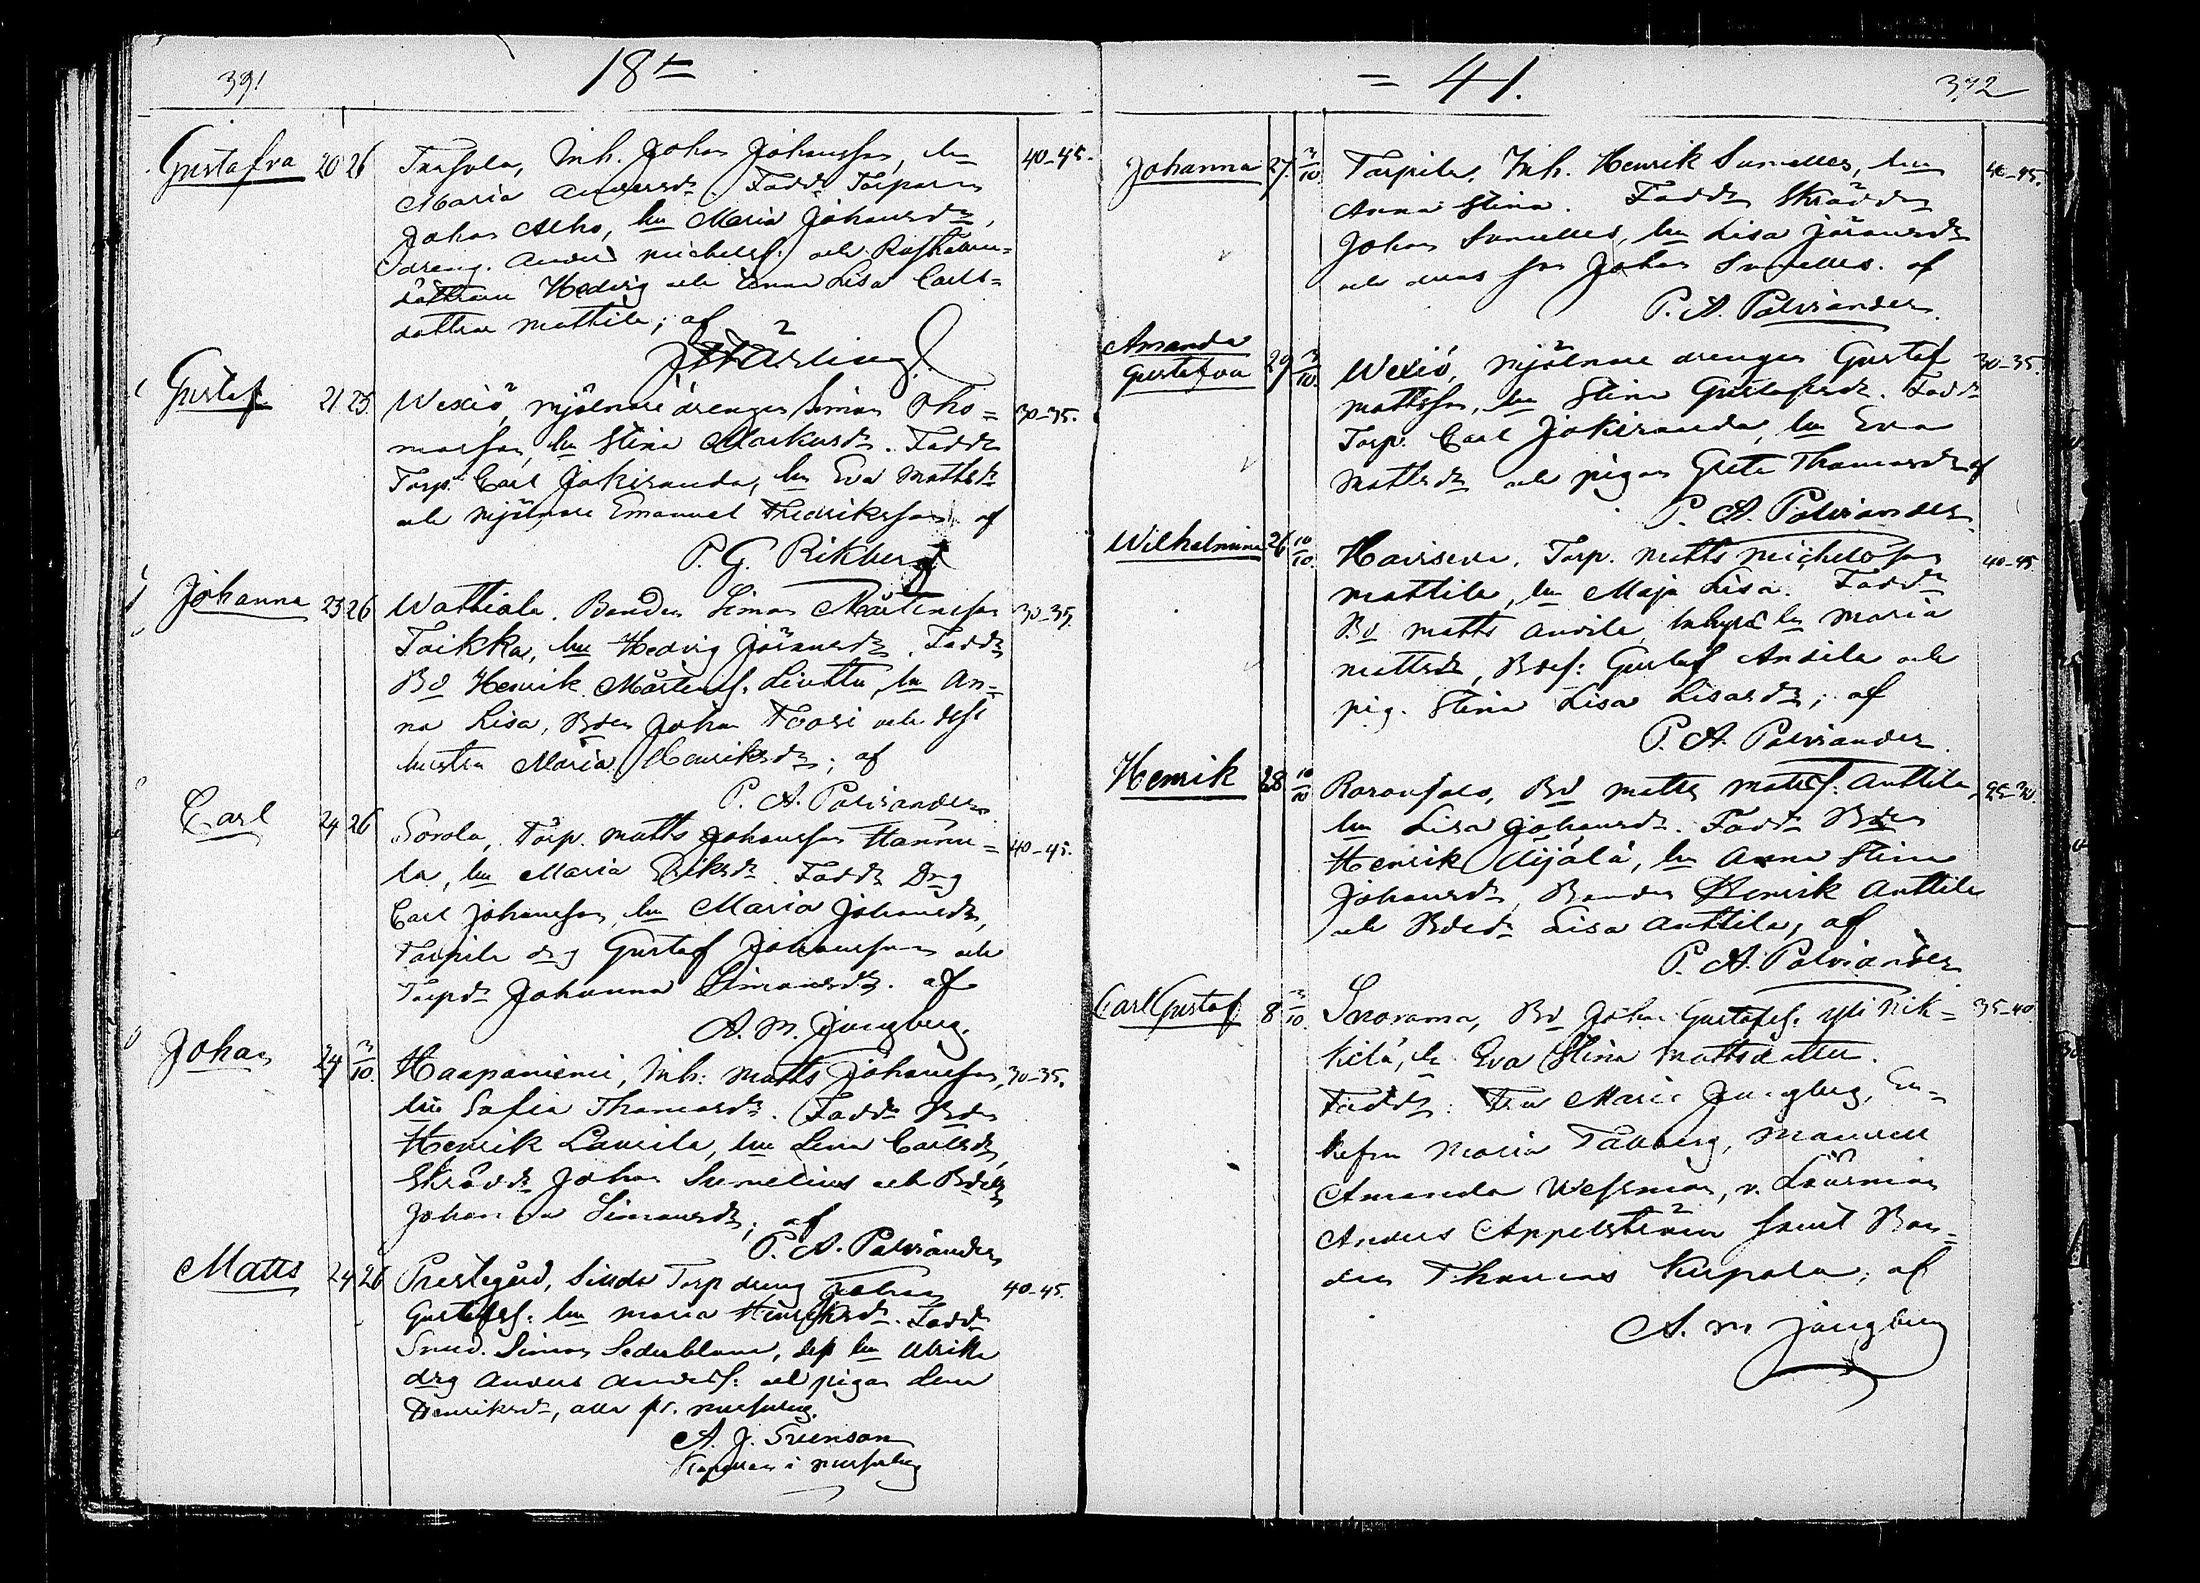 391
18
Gustafva 20 26 Inh. Johan Johansson, hu
Maria Andersdr. Faddr Torparen
Johan Alho, hu Maria Johansdr,
dreng. Anders Michelss. och
döttrarne Hedvig och Anna Lisa Carls=
döttrar Mattila; af
Gustaf 21 25 Wexiö, Mjölnare drengen Simon Tho=
masson, hu Stina Markusdr. Faddr
Torp. Carl Jokiranda, hu Eva Mattsdr
och Mjölnare Emanuel Fredriksson af
P. G. Rikberg
Johanna 23 26 Wattiala. Bonden Simon Mårtensson
Toikka, hu Hedvig Jöransdr. Faddr
Bd Henrik Mårtenss. Liuttu, hu An=
na Lisa, Bden Johan och dess
hustru Maria Henriksdr; af
P. A. Palviander
Carl 24 26 Sorola, Torp. Matts Johansson Hannu= 40-45.
la, hu Maria Eriksdr. Faddr Drg
Carl Johansson, hu Maria Johansdr,
Torpila drg Gustaf Johansson och
Torpdr Johanna Simonsdr. af
A. M. Jungberg.
Johan 24 3/10. Haapaniemi, Inh. Matts Johansson, 30-35.
hu Sofia Thomasdr. Faddr Bden
Henrik Laurila, hu Lena Carlsdr,
Skräddr Johan Sumelius och Bdedr
Johanna Simonsdr; af
P. A. Palviander
Matts 24 26 Prestegård, Torp dreng Johan 40-45.
Gustafss. hu Maria Henriksdr. Faddr
Simon Sederblom, hu Ulrika
drg Anders Anderss. och pigan Lena
Henriksdr, alla fr.
A. J. Svenson
Kapellan i
= 41.
392
Johanna 27 3/10 Torpila. Inh. Henrik Sumelles, hu 40-45.
Anna Stina. Faddr Skräddr
Johan Sumelles, hu Lisa Jöransdr
och deras son Johan Sumelles. af
P. A. Palviander.
Amanda
Gustafva 29 3/10. Wexiö, Mjölnare drengen Gustaf 30-35.
Mattsson, hu Stina Gustafsdr. Faddr
Torp. Carl Jokiranda, hu Eva
Mattsdr och pigan Greta Thomasdr af
P. A. Palviander
Wilhelmina 26 10/10. Torp. Matts Michelsson 40-45
Mattila, hu Maja Lisa. Faddr
Bd Matts hu Maria
Mattsdr, Gustaf och
pig. Stina Lisa Lisasdr; af
P. A. Palviander.
Henrik 28 10/10 Bd Matts Mattss. Anttila, 25-30.
hu Lisa Johansdr. Faddr Bden
Henrik Äijälä, hu Anna Stina
Johansdr, Bonden Henrik Anttila
och Bdedr Lisa Anttila, af
P. A. Palviander
Carl Gustaf 8 3/10. Sarorama, Bd Johan Gustafss. Yli Nik= 35-40.
kilä, hu Eva Stina Mattsdotter.
Faddr: Fru Maria Jungberg, En=
kefru Maria Tallberg, Mamsell
Amanda Wessman, v. Länsman
Anders Appelström samt Bon=
den Thomas Kupola; af
A. M. Jungberg